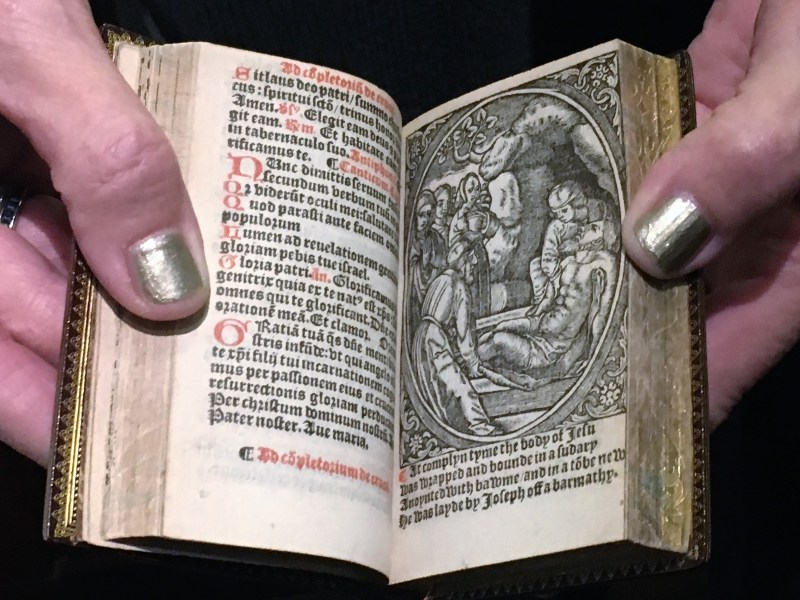 Ad cōpletoriū de
Sit laus deo patri/ summo
cus: spirituiscto/ trinus hono
Amen. Elegit eam deus
git eam. Et habitare
in tabernaculo suo. Antipho
rificamus te. ¶ Canticum
NUnc dimittis seruum
secundum verbum tuū
Qz viderūt oculi mei: saluta
Quod parasti ante faciem
populorum
Lumen ad reuelationem gen
gloriam pebis tue israel.
Gloria patri. An. Glorifica
genitrix quia ex te natꝰ est
omnes qui te glorificant.
orationē meā. Et clamor.
GRatiā tuā q̄s dn̄e men
stris infūde: vt qui angelo
te xp̄i filij tui incarnationem
mus per passionem eius et cru
resurrectionis gloriam perdu
Per christum dominum nostrū
Pater noster. Aue maria.
¶ Ad cōpletorium de
¶ At complyn tyme the body of Jesu
was wrapped and bounde in a sudary
Anoynted with bawme/and in a tōbe new
He was layde by Joseph off a barmathy.